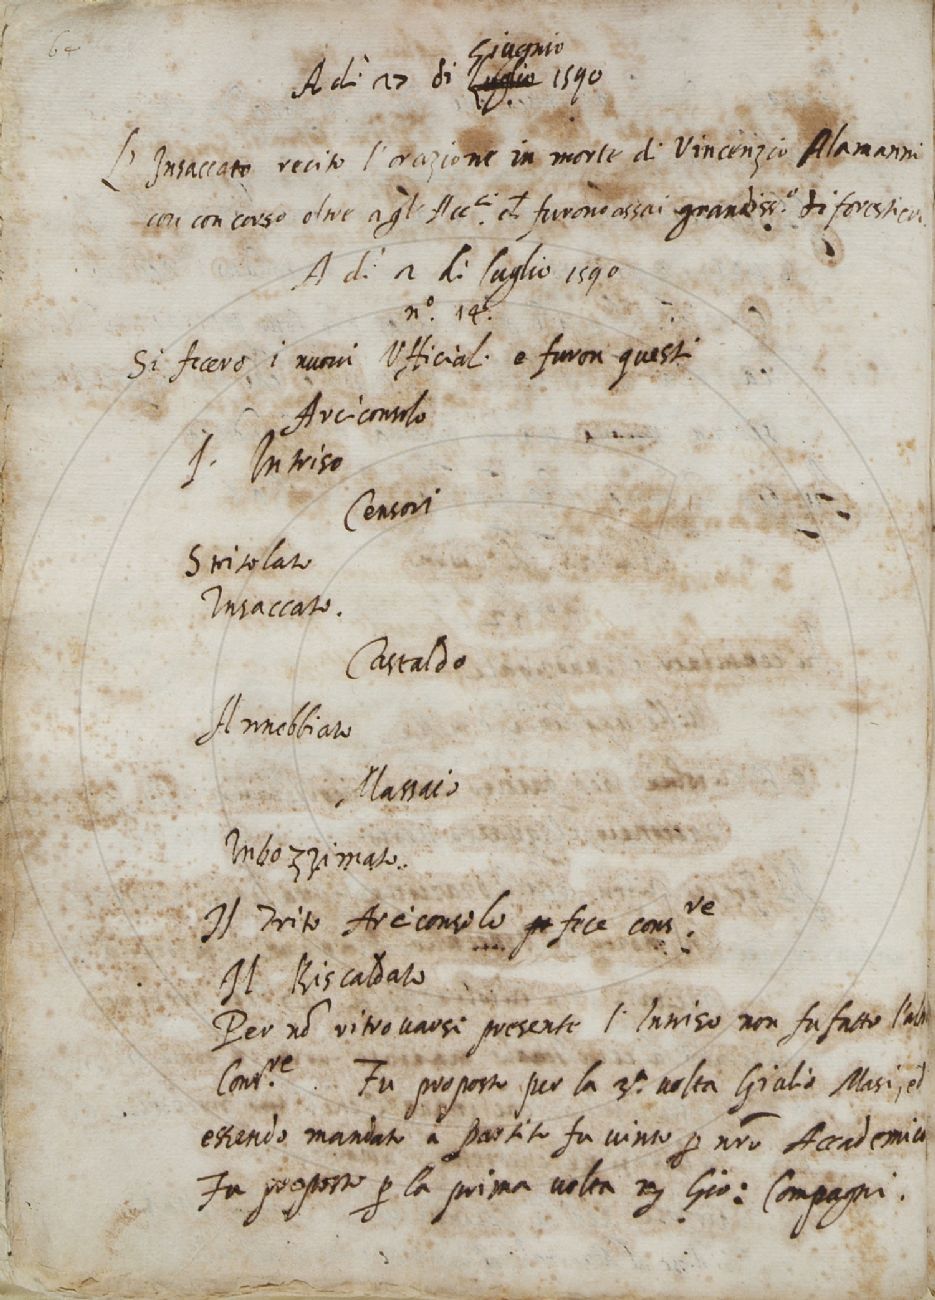 64
Giugnio
A dì 27 di Luglio 1590
L' Insaccato recitò l'orazione in morte di Vincenzio Alamanni
con concorso oltre agli Acc.ci ch furono assai grandiss.o di forestieri
A dì 2 di luglio 1590
n.o 14.
Si fecero i nuovi Ufficiali e furon questi
Arciconsolo
L' Intriso
Censori
Stritolato
Insaccato.
Castaldo
Annebbiato
Massaio
Inbozzimato.
Il Trito Arciconsolo fece cons.re
Il Riscaldato
Per nō ritrovarsi presente l' Intriso non fu fatto l'altro
Cons.re. Fu proposto per la 3a volta Giulio Masi, ed
essendo mandato a partito fu vinto p nr̄o Accademico
Fu proposto p la prima volta Gio: Compagni.